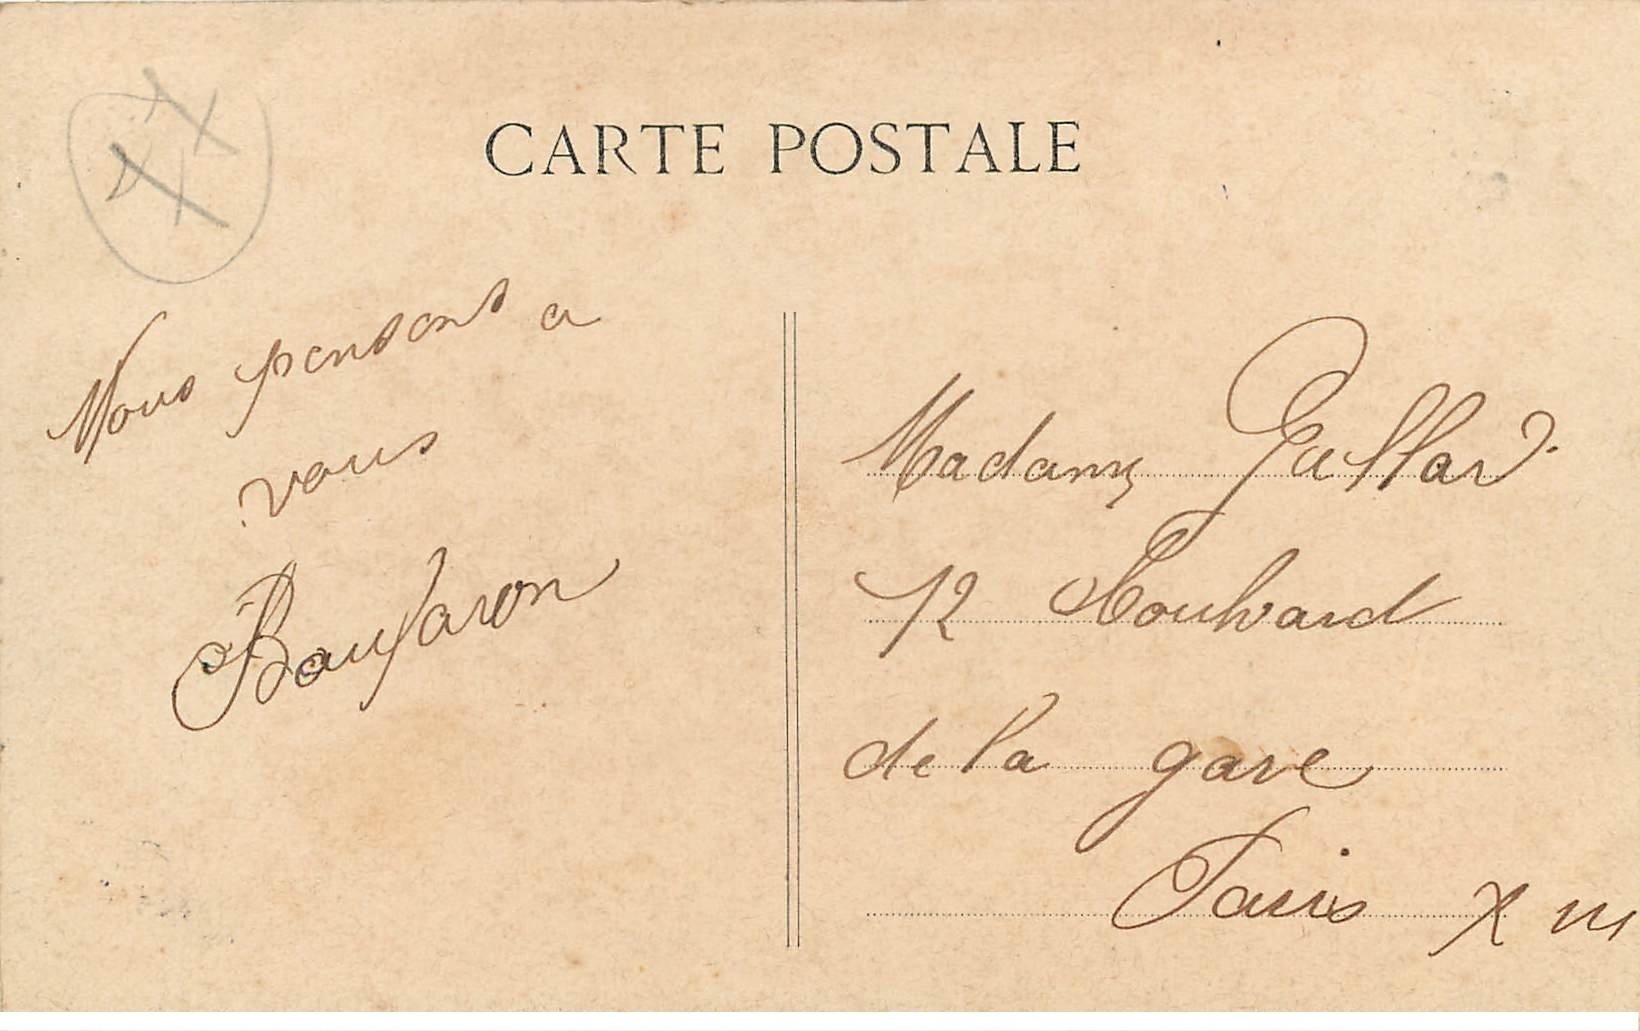 CARTE POSTALE
Nous pensons a
vous
Boufaron
Madame Gallard
12 Boulvard
de la gare
Paris X III